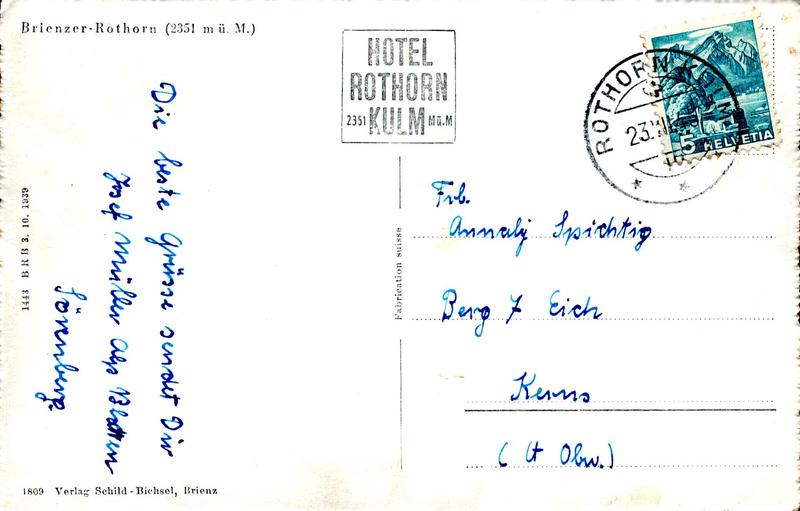 Brienzer-Rothorn (2351 m ü. M.)
HOTEL
ROTHORN
2351 KULM M.ü.M
ROTHORN KULM
23.
5 HELVETIA
Die beste Grüsse sendet Dir
Josef Müller Alp Blatten
Sörenberg.
1443 B R B 3. 10. 1939
Fabrication suisse
Frl.
Annaly Spichtig
Berg 7 Eich
Kerns
(Kt Obw.)
1809 Verlag Schild-Bichsel, Brienz